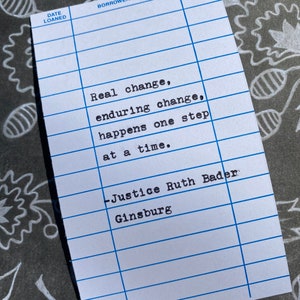 DATE
LOANED
Real change,
enduring change,
happens one step
at a time.
-Justice Ruth Bader
Ginsburg